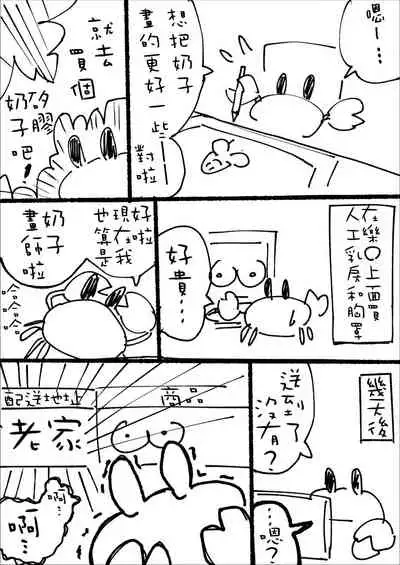 嗯ー…
想把奶子
畫的更好一些
對啦ー
就去
買個
矽膠
奶子吧!
在樂〇上面買
人工乳房和胸罩
好貴…
好啦
現在我
也算是
奶子
畫師啦
哈哈哈哈
幾天後
送到了
沒有?
…嗯?
商品
配送地址
老家
啊…
啊…